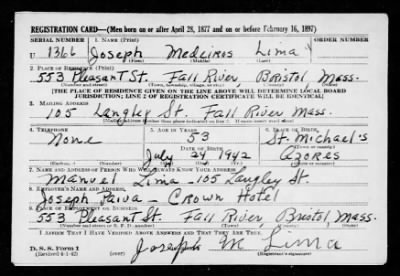 REGISTRATION CARD—(Men born on or after April 28, 1877 and on or before February 16, 1897)
SERIAL NUMBER 1. NAME (Print) ORDER NUMBER
U 1366 Joseph Medeiros Lima
(First) (Middle) (Last)
2. PLACE OF RESIDENCE (Print)
553 Pleasant St. Fall River, Bristol Mass.
(Number and street) (Town, township, village, or city) (County) (State)
[THE PLACE OF RESIDENCE GIVEN ON THE LINE ABOVE WILL DETERMINE LOCAL BOARD
JURISDICTION; LINE 2 OF REGISTRATION CERTIFICATE WILL BE IDENTICAL]
3. MAILING ADDRESS
105 Langley St. Fall River Mass.
4. TELEPHONE 5. AGE IN YEARS 6. PLACE OF BIRTH
None 53 St. Michael's
DATE OF BIRTH
July 24 1942 Azores
7. NAME AND ADDRESS OF PERSON WHO WILL ALWAYS KNOW YOUR ADDRESS
Manuel Lima - 105 Langley St.
8. EMPLOYER'S NAME AND ADDRESS
Joseph Paiva - Crown Hotel
9. PLACE OF EMPLOYMENT OR BUSINESS
553 Pleasant St. Fall River, Bristol, Mass.
I AFFIRM THAT I HAVE VERIFIED ABOVE ANSWERS AND THAT THEY ARE TRUE.
D. S. S. Form 1
(over)
Joseph M Lima